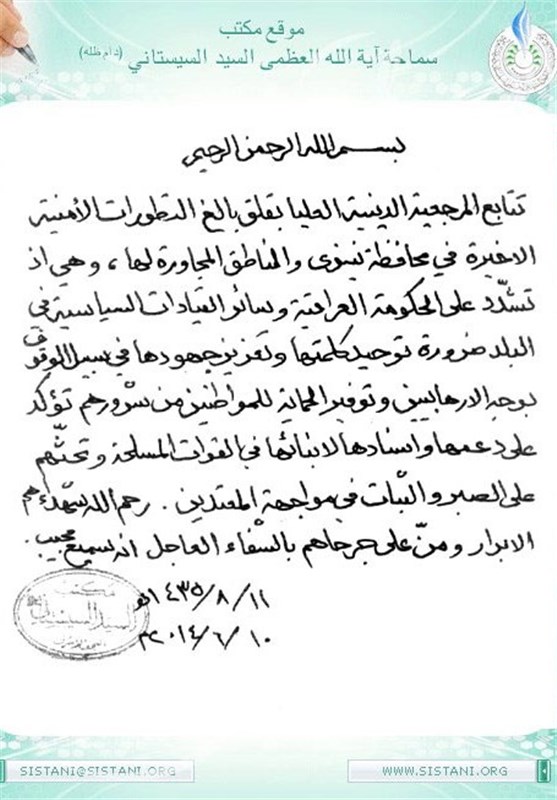 موقع مكتب
سماحة آية الله العظمى السيد السيستاني (دام ظله)
بسم الله الرحمن الرحيم
تتابع المرجعية الدينية العليا بقلق بالغ التطورات الأمنية
الاخيرة في محافظة نينوى والمناطق المجاورة لها ، وهي اذ
تشدّد على الحكومة العراقية وسائر القيادات السياسية في
البلد ضرورة توحيد كلمتها وتعزيز جهودها في سبيل الوقوف
بوجه الارهابيين وتوفير الحماية للمواطنين من شرورهم تؤكد
على دعمها واسنادها لابنائها في القوات المسلحة وتحثّهم
على الصبر والثبات في مواجهة المعتدين . رحم الله شهداءهم
الابرار ومنّ على جرحاهم بالشفاء العاجل انه سميع مجيب .
١١/٨/١٤٣٥هـ
١٠/٦/٢٠١٤م
مكتب
السيد السيستاني
SISTANI@SISTANI.ORG
WWW.SISTANI.ORG